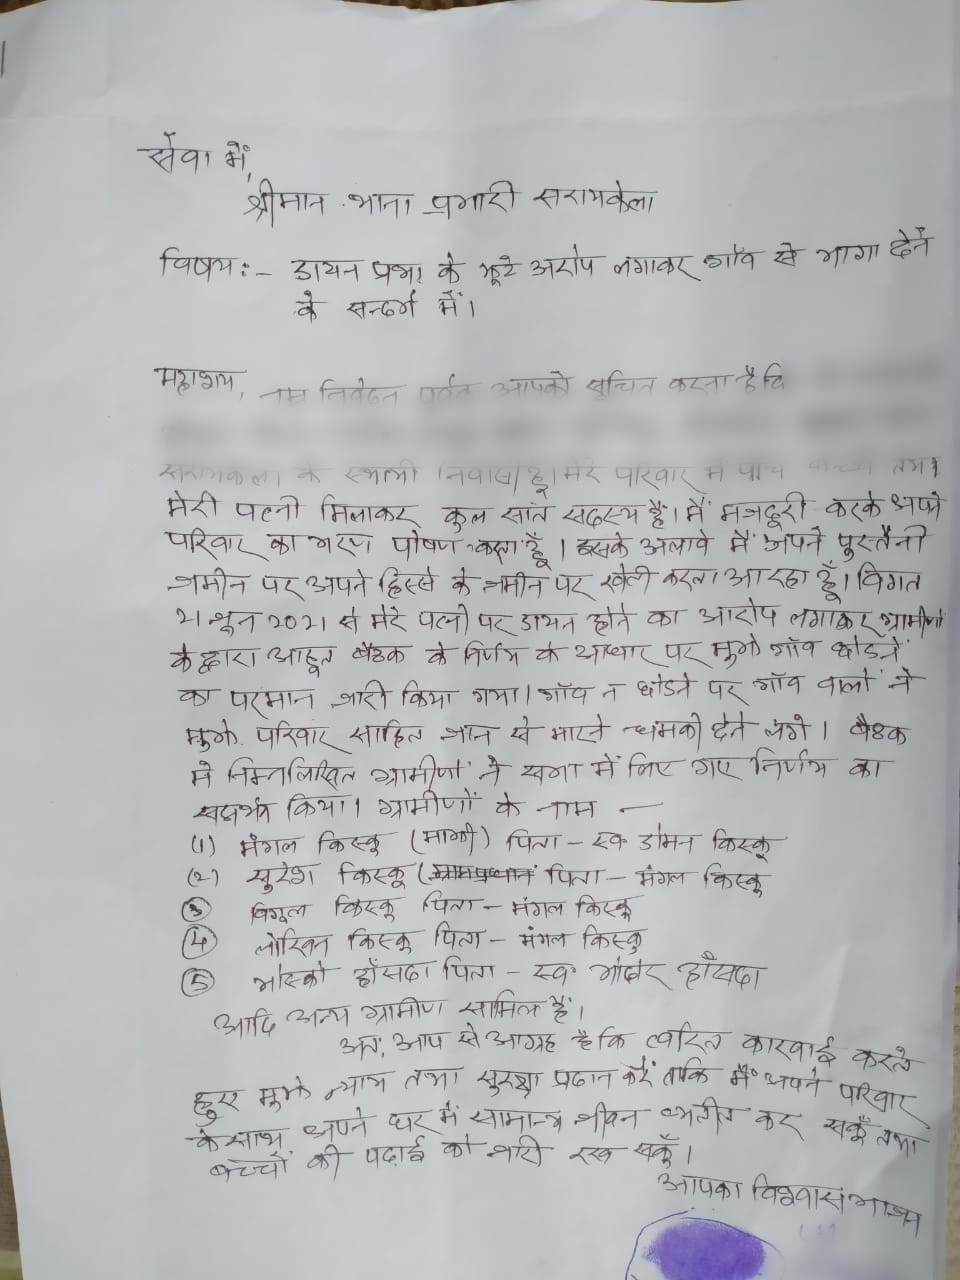 सेवा में,
श्रीमान थाना प्रभारी सरायकेला
विषय:- डायन प्रथा के झूठे अरोप लगाकर गाँव से भागा देने
के सन्दर्भ में।
महाशय, नम्र निवेदन पूर्वक आपको सूचित करता है कि
सरायकेला के स्थायी निवासी हूँ। मेरे परिवार में पांच बच्चे तथा
मेरी पत्नी मिलाकर कुल सात सदस्य हैं। मैं मजदूरी करके अपने
परिवार का भरण पोषण करता हूँ। इसके अलावे मैं अपने पुस्तैनी
जमीन पर अपने हिस्से के जमीन पर खेती करता आ रहा हूँ। विगत
21 जून 2021 से मेरे पत्नी पर डायन होने का आरोप लगाकर ग्रामीणों
के द्वारा आहूत बैठक के निर्णय के आधार पर मुझे गाँव छोडने
का परमान जारी किया गया। गाँव न छोडने पर गाँव वालों ने
मुझे परिवार साहित जान से मारने धमकी देने लगे। बैठक
में निम्नलिखित ग्रामीणों ने सभा में लिए गए निर्णय का
किया। ग्रामीणों के नाम -
(1) मंगल किस्कू (माझी) पिता - स्व डोमन किस्कू
(2) सुरेश किस्कू (ग्रामप्रधान पिता - मंगल किस्कू
(3) किस्कू पिता - मंगल किस्कू
(4) किस्कू पिता - मंगल किस्कू
(5) हाँसदा पिता - स्व हाँसदा
आदि अन्य ग्रामीण सामिल हैं।
अतः आप से आग्रह है कि त्वरित कारवाई करते
हुए मुझे न्याय तथा सुरक्षा प्रदान करें ताकि मैं अपने परिवार
के साथ अपने घर में सामान्य जीवन व्यतीत कर सकूँ तथा
बच्चों की पढाई को जारी रख सकूँ।
आपका विश्वासभाजन